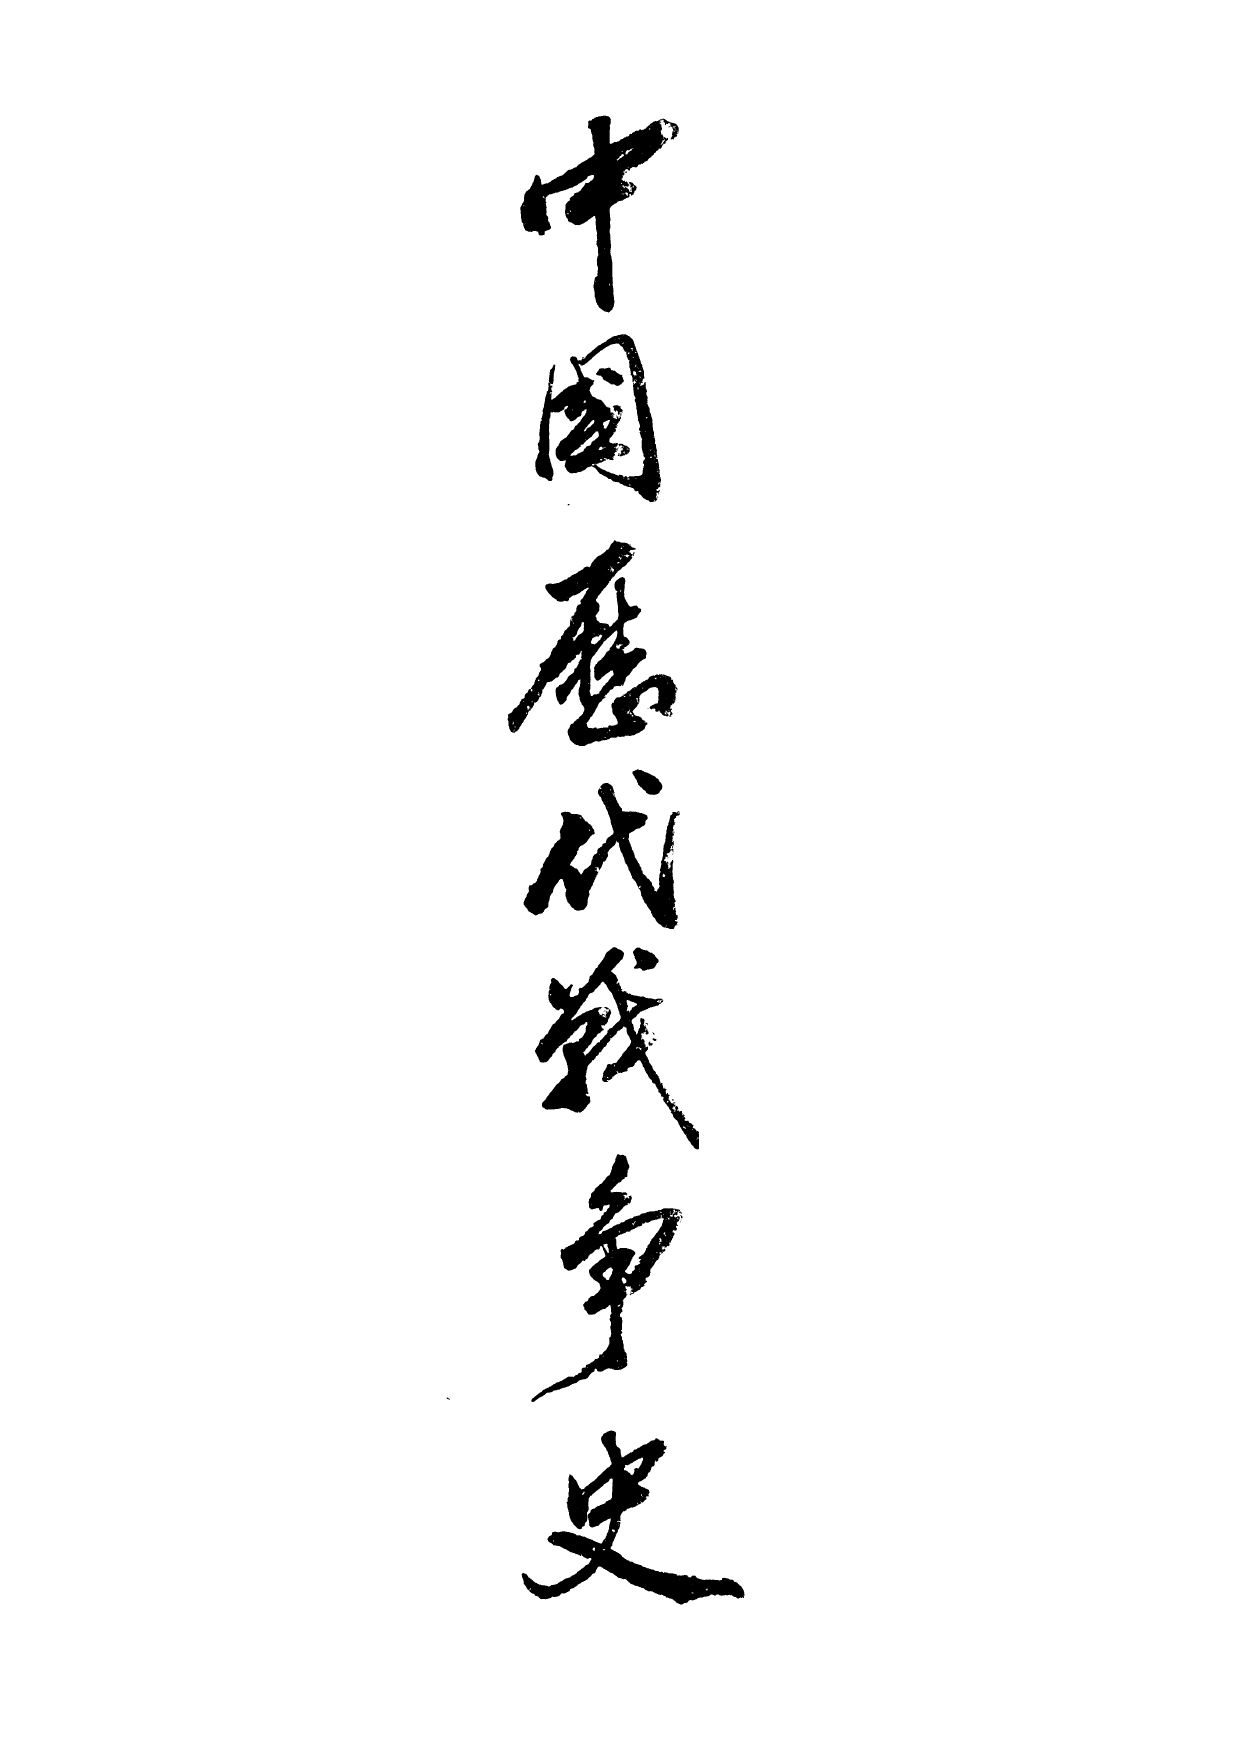 中國歷代戰爭史